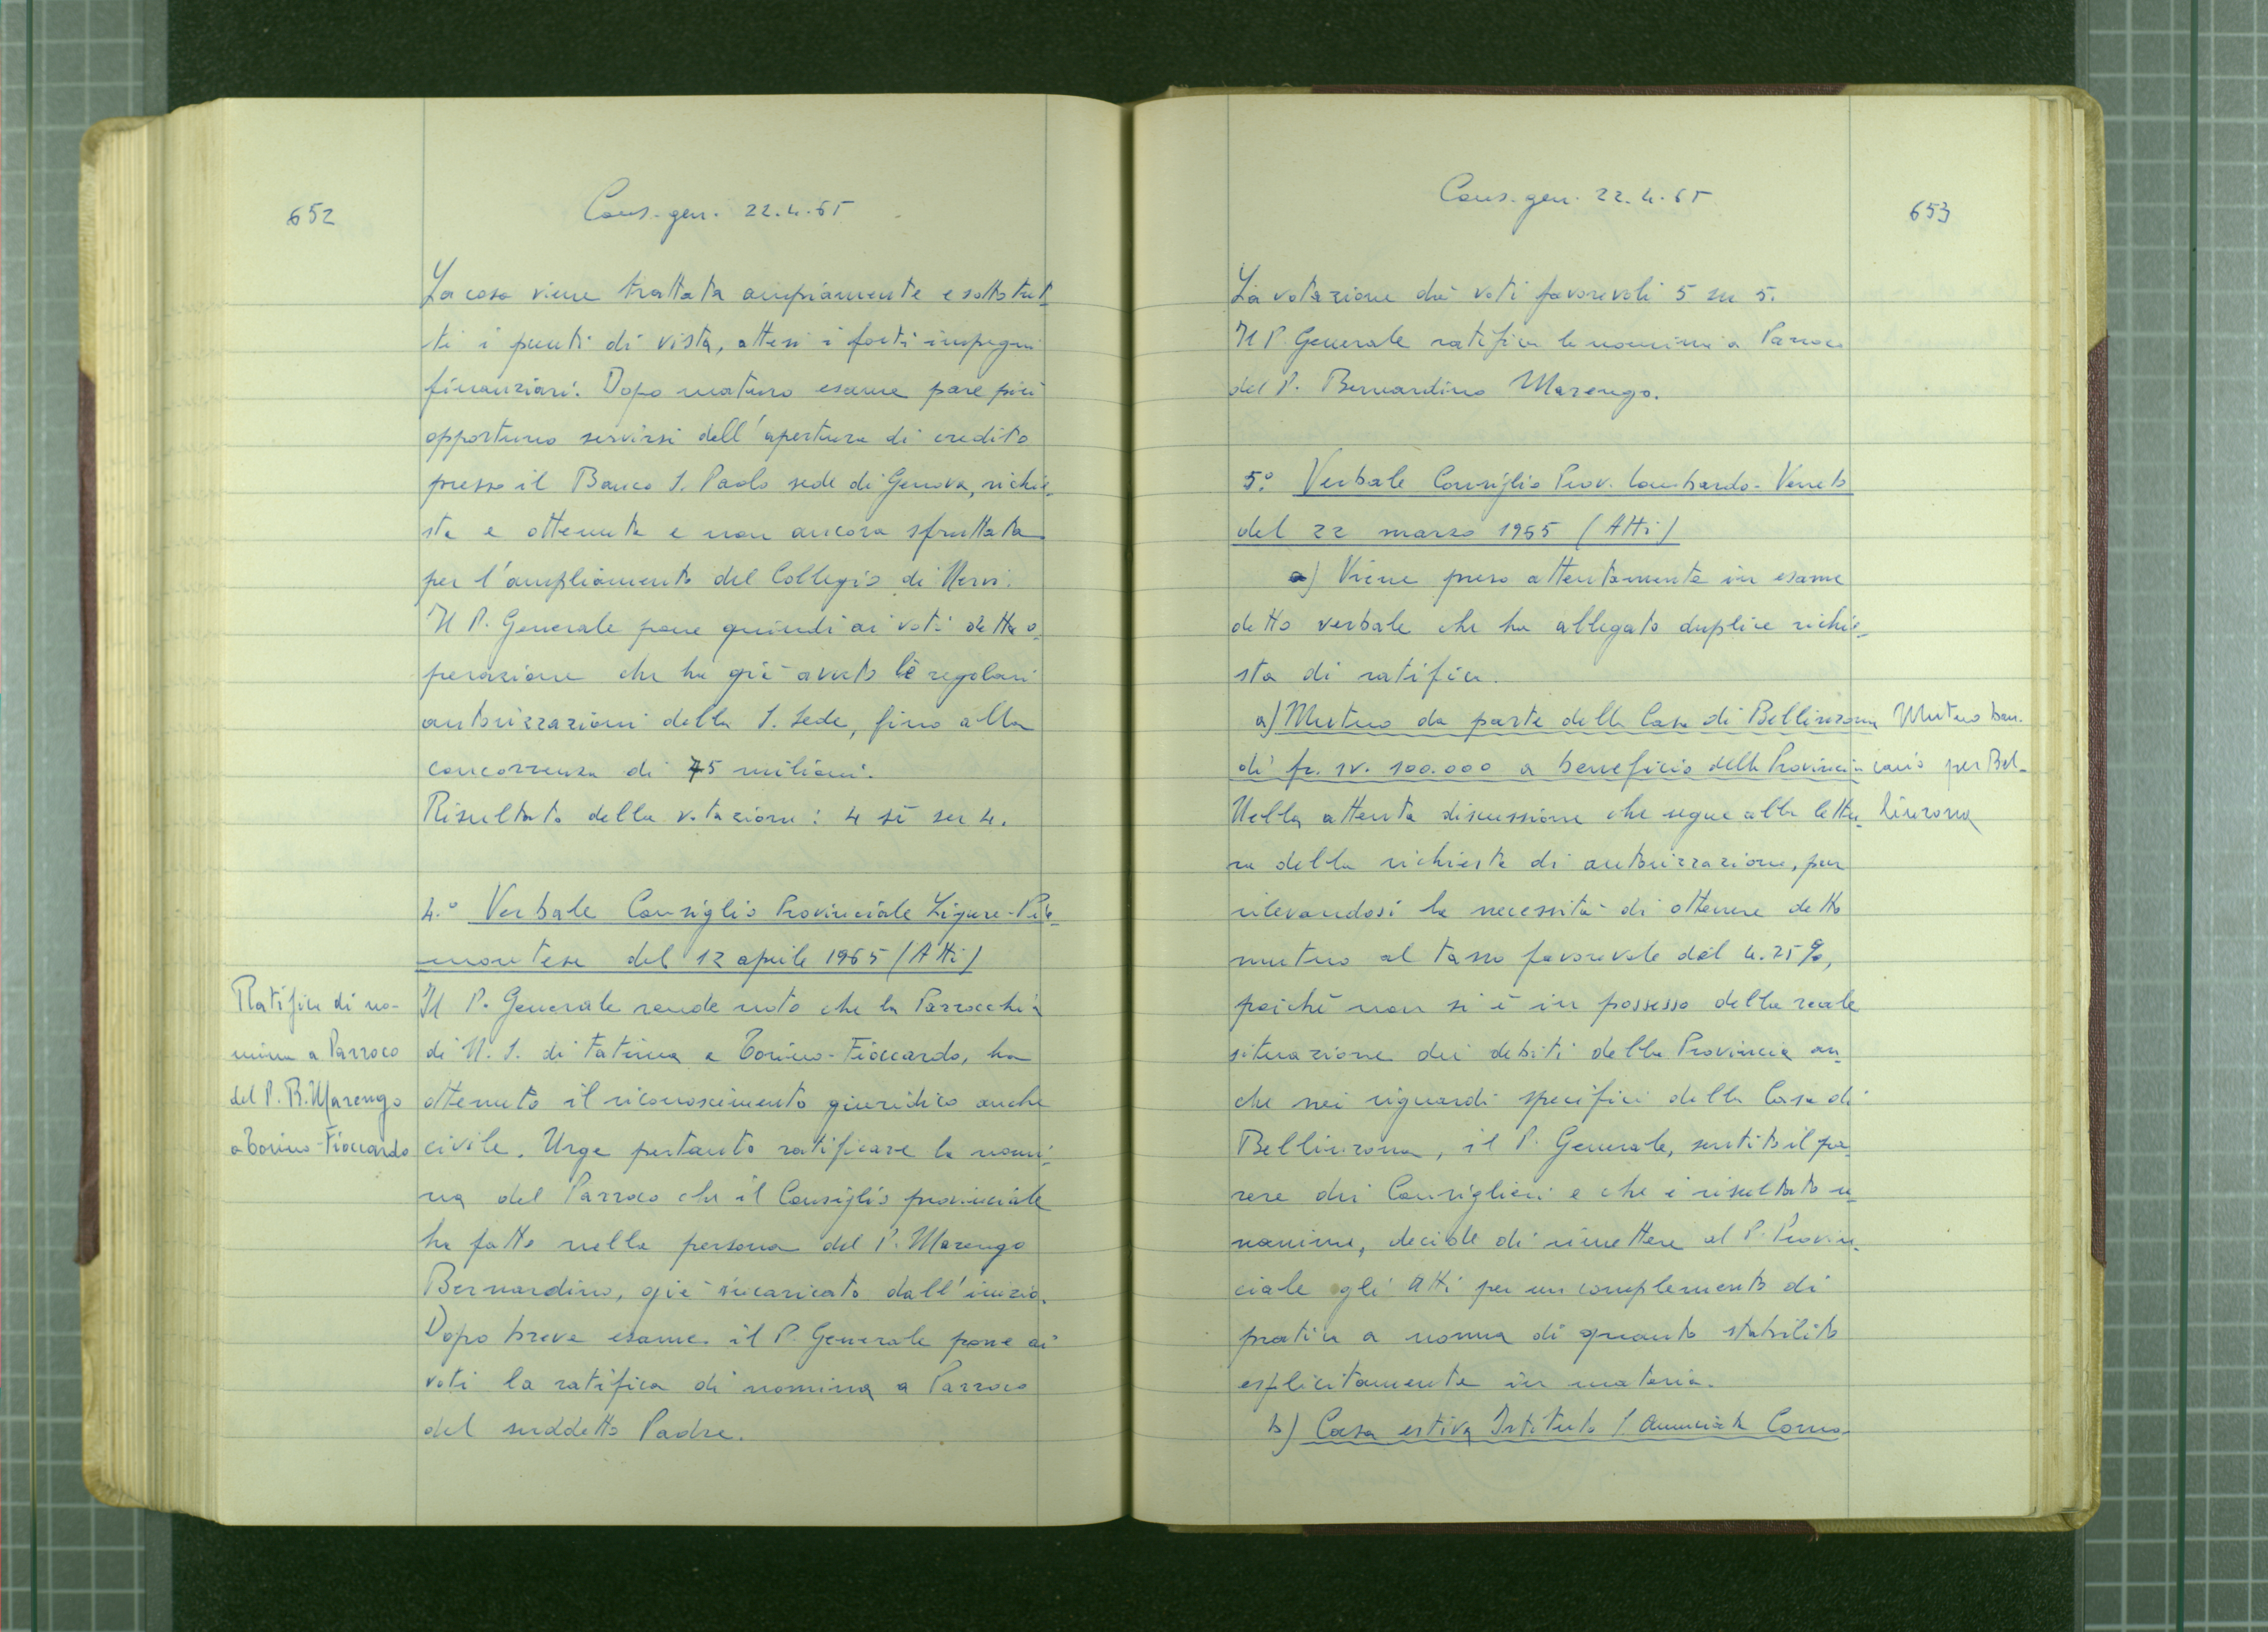 652
Cons. gen. 22.4.65
La cosa viene trattata ampiamente e sotto tut-
ti i punti di vista, attesi i forti impegni
finanziari. Dopo maturo esame pare più
opportuno servirsi dell'apertura di credito
presso il Banco S. Paolo sede di Genova, richie-
sta e ottenuta e non ancora sfruttata
per l'ampliamento del Collegio di Nervi.
Il P. Generale pone quindi ai voti detta o-
perazione che ha già avuto le regolari
autorizzazioni della S. Sede, fino alla
concorrenza di 75 milioni.
Risultato della votazione: 4 sì su 4.
4.° Verbale Consiglio Provinciale Ligure-Pie-
montese del 12 aprile 1965 (Atti)
Ratifica di no-
mina a Parroco
del P. B. Marengo
a Torino-Fioccardo
Il P. Generale rende noto che la Parrocchia
di N. S. di Fatima a Torino-Fioccardo, ha
ottenuto il riconoscimento giuridico anche
civile. Urge pertanto ratificare la nomi-
na del Parroco che il Consiglio provinciale
ha fatto nella persona del P. Marengo
Bernardino, già incaricato dall'inizio.
Dopo breve esame il P. Generale pone ai
voti la ratifica di nomina a Parroco
del suddetto Padre.
Cons. gen. 22.4.65
653
La votazione dà voti favorevoli 5 su 5.
Il P. Generale ratifica la nomina a Parroco
del P. Bernardino Marengo.
5.° Verbale Consiglio Prov. Lombardo-Veneto
del 22 marzo 1965 (Atti)
a) Viene preso attentamente in esame
detto verbale che ha allegato duplice richie-
sta di ratifica.
a) Mutuo da parte della Casa di Bellinzona
di fr. sv. 100.000 a beneficio della Provincia
Mutuo ban-
cario per Bel-
linzona
Nella attenta discussione che segue alla lettu-
ra della richiesta di autorizzazione, pur
rilevandosi la necessità di ottenere detto
mutuo al tasso favorevole del 4.25%,
poichè non si è in possesso della reale
situazione dei debiti della Provincia an-
che nei riguardi specifici della Casa di
Bellinzona, il P. Generale, sentito il pa-
rere dei Consiglieri e che è risultato u-
nanime, decide di rimettere al P. Provin-
ciale gli Atti per un complemento di
pratica a norma di quanto stabilito
esplicitamente in materia.
b) Casa estiva Istituto SS. Annunciata Como